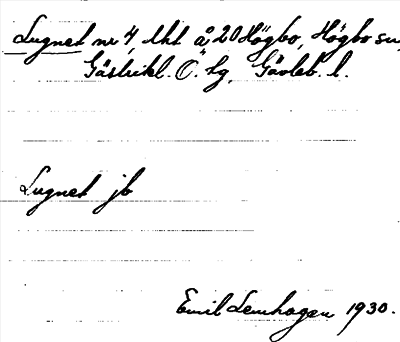 Lugnet nr 4, lht å 20 Högbo, Högbo sn,
Gästrikl. Ö. tg, Gävleb. l.
Lugnet jb
Emil Lemhagen 1930.